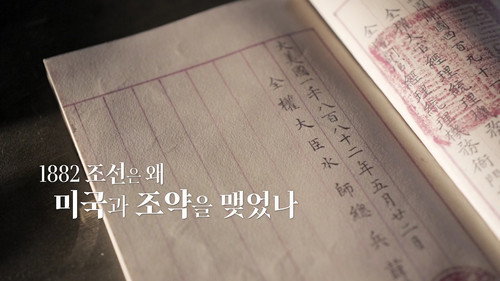 1882 조선은 왜
미국과 조약을 맺었나
經理統理機務衙
大美國一千八百八十二年五月廿二日
全權大臣水師總兵薛